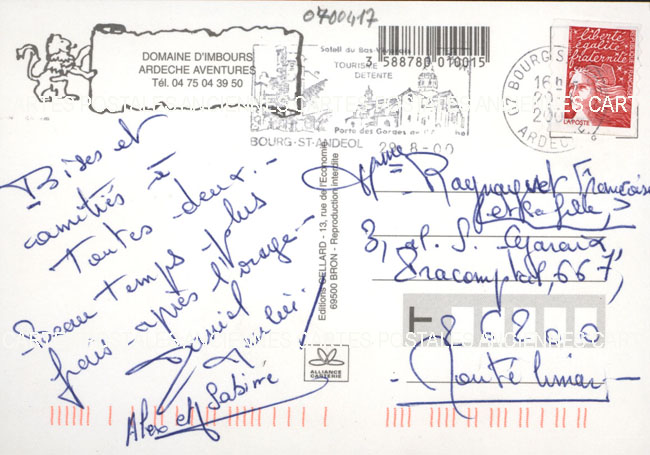 0700417
DOMAINE D'IMBOURS
ARDECHE AVENTURES
Tél. 04 75 04 39 50
Soleil du Bas-Vivarais
TOURISME
DETENTE
Porte des Gorges de
BOURG-ST-ANDEOL
28-8-00
3 588780 010015
07 BOURG S
16h
ARDEC
liberté
égalité
fraternité
LA POSTE
CARTES POSTALES ANCIENNES CARTES POSTALES ANCIENNES CARTES
Bises et
amitiés à
toutes deux.-
Beau temps plus
frais après l'orage-
Daniel
Alex et Sabine
Editions CELLARD - 13, rue de l'Economie
69500 BRON - Reproduction interdite
ALLIANCE
CARTERIE
Mme Françoise
et sa fille,
3, al.
667,
26200
Montélimar
CARTES POSTALES ANCIENNES CARTES POSTALES ANCIENNES CARTES